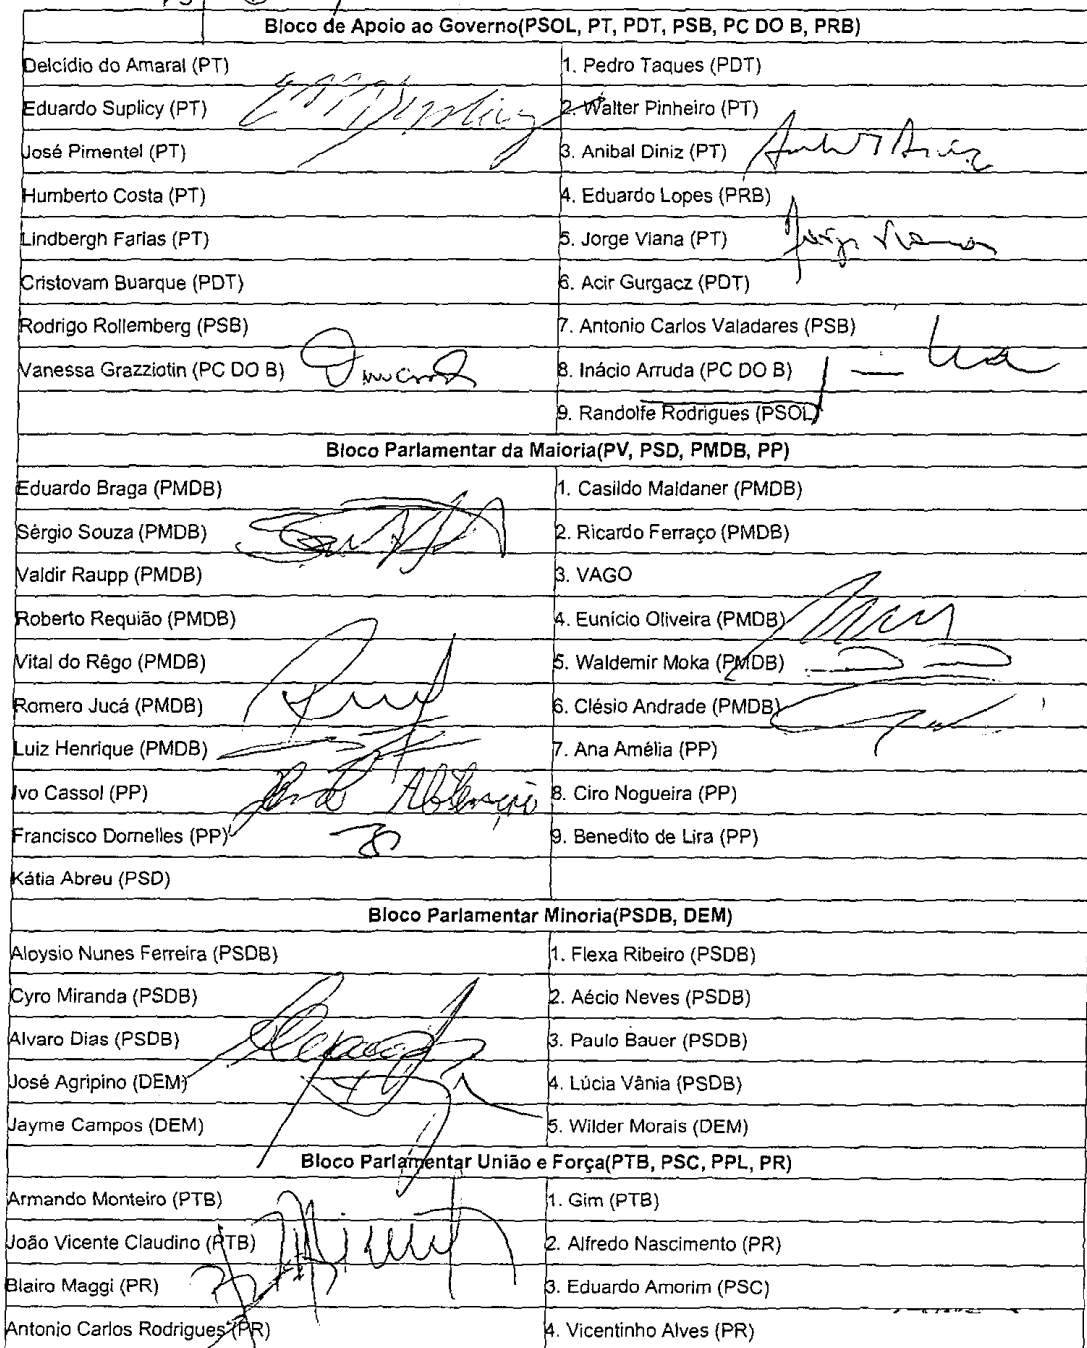 Bloco de Apoio ao Governo(PSOL, PT, PDT, PSB, PC DO B, PRB)
Delcídio do Amaral (PT)
1. Pedro Taques (PDT)
Eduardo Suplicy (PT)
2. Walter Pinheiro (PT)
José Pimentel (PT)
3. Anibal Diniz (PT)
Humberto Costa (PT)
4. Eduardo Lopes (PRB)
Lindbergh Farias (PT)
5. Jorge Viana (PT)
Cristovam Buarque (PDT)
6. Acir Gurgacz (PDT)
Rodrigo Rollemberg (PSB)
7. Antonio Carlos Valadares (PSB)
Vanessa Grazziotin (PC DO B)
8. Inácio Arruda (PC DO B)
9. Randolfe Rodrigues (PSOL)
Bloco Parlamentar da Maioria(PV, PSD, PMDB, PP)
Eduardo Braga (PMDB)
1. Casildo Maldaner (PMDB)
Sérgio Souza (PMDB)
2. Ricardo Ferraço (PMDB)
Valdir Raupp (PMDB)
3. VAGO
Roberto Requião (PMDB)
4. Eunício Oliveira (PMDB)
Vital do Rêgo (PMDB)
5. Waldemir Moka (PMDB)
Romero Jucá (PMDB)
6. Clésio Andrade (PMDB)
Luiz Henrique (PMDB)
7. Ana Amélia (PP)
Ivo Cassol (PP) Abstenção
8. Ciro Nogueira (PP)
Francisco Dornelles (PP)
9. Benedito de Lira (PP)
Kátia Abreu (PSD)
Bloco Parlamentar Minoria(PSDB, DEM)
Aloysio Nunes Ferreira (PSDB)
1. Flexa Ribeiro (PSDB)
Cyro Miranda (PSDB)
2. Aécio Neves (PSDB)
Alvaro Dias (PSDB)
3. Paulo Bauer (PSDB)
José Agripino (DEM)
4. Lúcia Vânia (PSDB)
Jayme Campos (DEM)
5. Wilder Morais (DEM)
Bloco Parlamentar União e Força(PTB, PSC, PPL, PR)
Armando Monteiro (PTB)
1. Gim (PTB)
João Vicente Claudino (PTB)
2. Alfredo Nascimento (PR)
Blairo Maggi (PR)
3. Eduardo Amorim (PSC)
Antonio Carlos Rodrigues (PR)
4. Vicentinho Alves (PR)